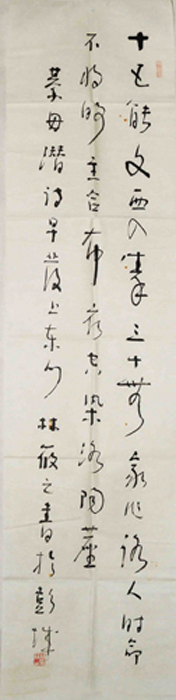 十五能文西入秦三十無家作路人时命
不將明主合布衣空染洛陽塵
綦毋潛詩早發上東門 林筱之書於彭城